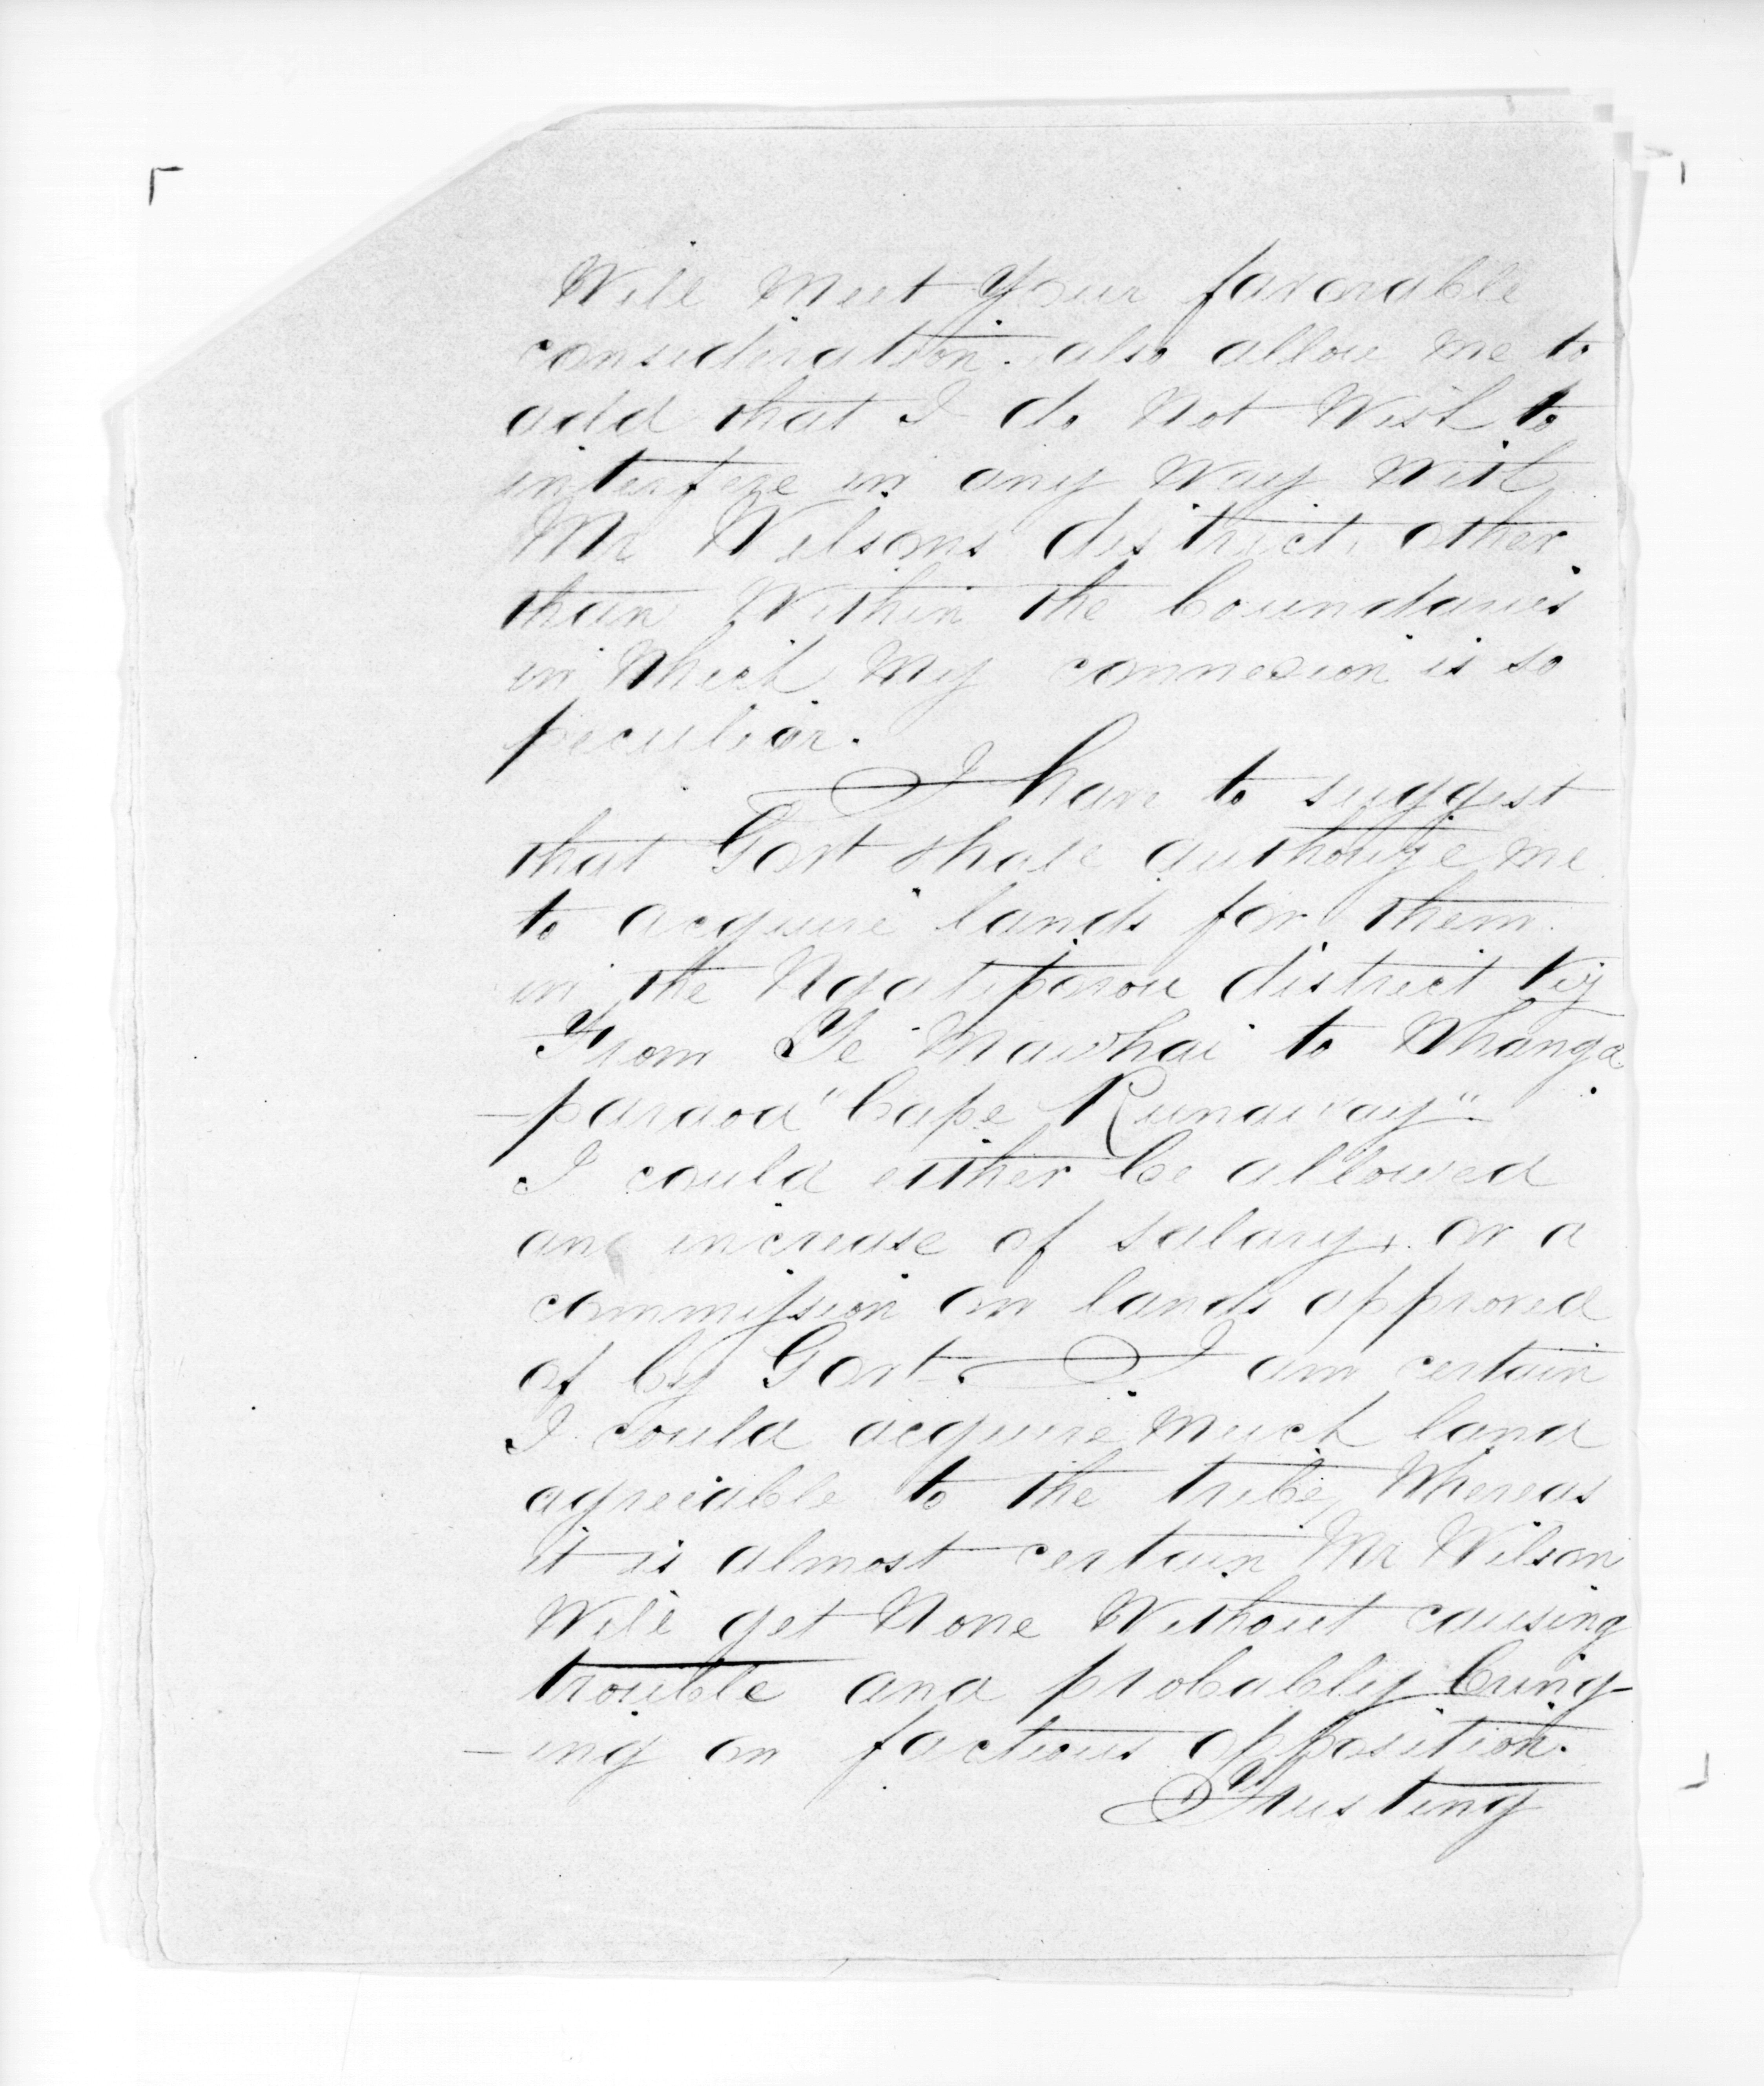 Will meet Your favorable
consideration. also allow me to
add that I do not Wish to
interfere in any Way With
Mr Wilsons district, other
than Within the boundaries
in Which My connexion is so
peculiar.
I have to suggest
that Govt shall authorize me
to acquire lands for them
in the Ngatiporou district viz
From Te Mawhai to Whanga
-paraoa "Cape Runaway".
I could either be allowed
an increase of salary, or a
commission on lands approved
of by Govt. I am certain
I could acquire Much land
agreeable to the tribe, Whereas
it is almost certain Mr Wilson
Will get None Without causing
trouble and probably bring-
-ing on factious opposition.
Trusting